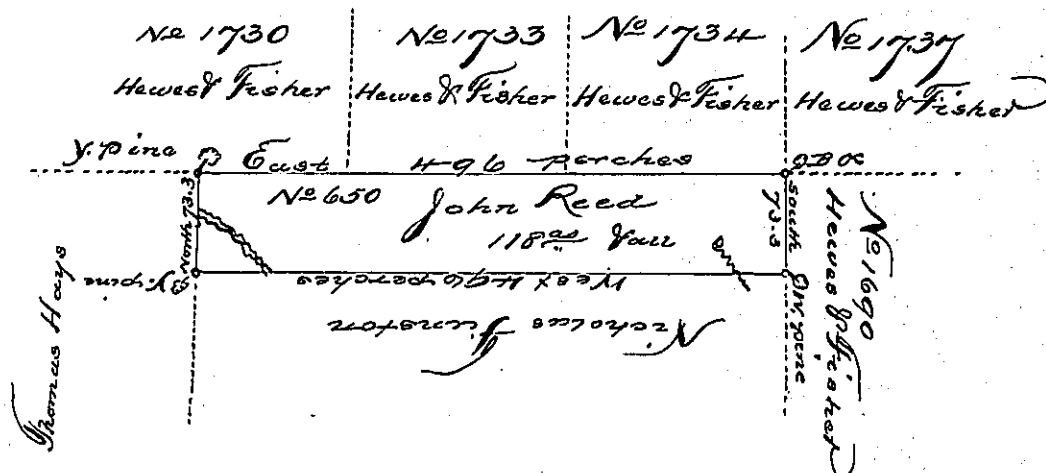 No 1730 No 1733 No 1734 No 1737
Hewes & Fisher Hewes & Fisher Hewes & Fisher Hewes & Fisher
Y. pine East 496 perches
No 650 John Reed
118 as
North 73.3
South 73.3
West 496 perches
Y. pine
W. pine
Nicholas Funston
Thomas Hays
No 1690
Hewes & Fisher